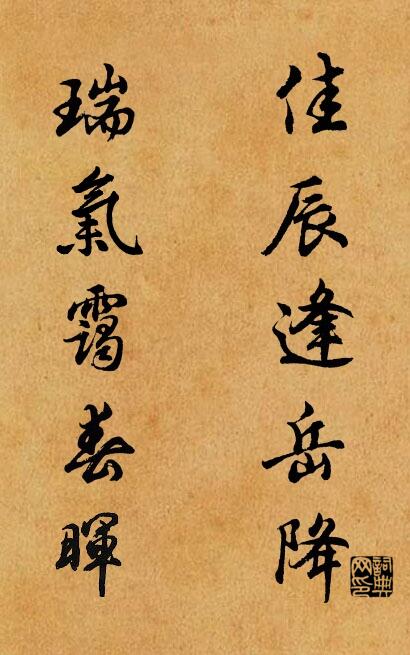 佳辰逢岳降
瑞氣靄春暉
詞典網印